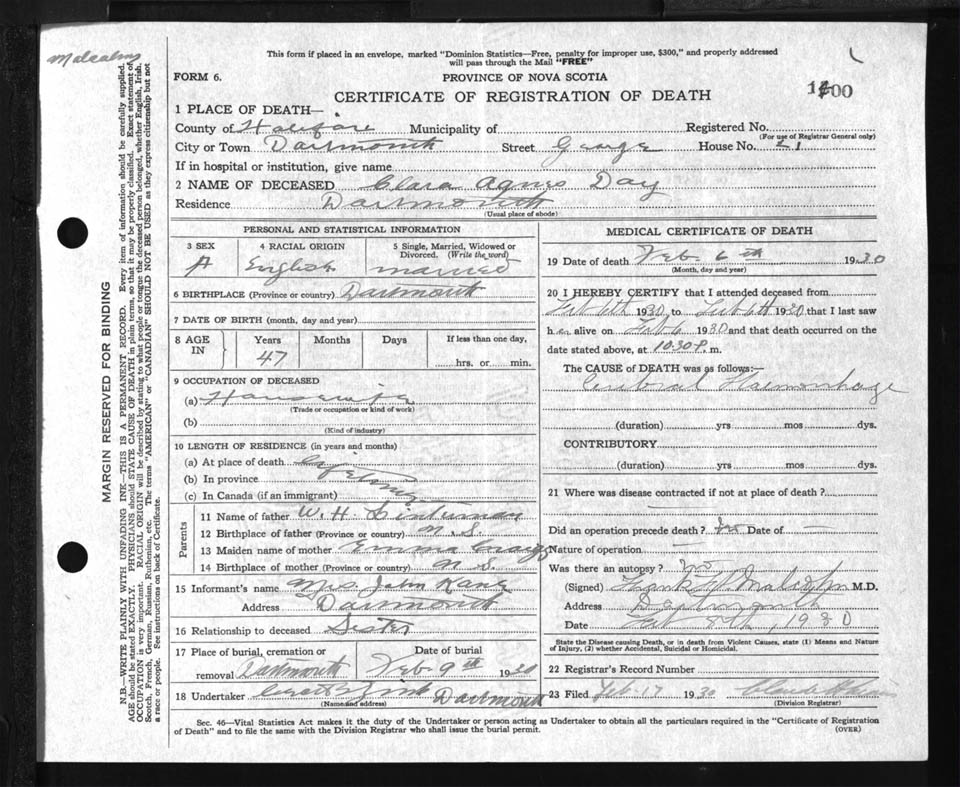 Malcolm
This form if placed in an envelope, marked "Dominion Statistics—Free, penalty for improper use, $300," and properly addressed
will pass through the Mail "FREE"
FORM 6.
PROVINCE OF NOVA SCOTIA
CERTIFICATE OF REGISTRATION OF DEATH
1 PLACE OF DEATH—
County of Halifax Municipality of Registered No.
(For use of Registrar General only)
City or Town Dartmouth Street George House No. 21
If in hospital or institution, give name
2 NAME OF DECEASED Clara Agnes Day
Residence Dartmouth
(Usual place of abode)
PERSONAL AND STATISTICAL INFORMATION
3 SEX 4 RACIAL ORIGIN 5 Single, Married, Widowed or
Divorced. (Write the word)
English married
6 BIRTHPLACE (Province or country) Dartmouth
7 DATE OF BIRTH (month, day and year)
8 AGE IN Years Months Days If less than one day,
47 hrs. or min.
9 OCCUPATION OF DECEASED
(a) Housewife
(Trade or occupation or kind of work)
(b)
(Kind of industry)
10 LENGTH OF RESIDENCE (in years and months)
(a) At place of death Lifetime
(b) In province
(c) In Canada (if an immigrant)
Parents
11 Name of father W. H.
12 Birthplace of father (Province or country) N. S.
13 Maiden name of mother Emma
14 Birthplace of mother (Province or country) N. S.
15 Informant's name Mrs. John Kane
Address Dartmouth
16 Relationship to deceased Sister
17 Place of burial, cremation or Date of burial
removal Dartmouth Feb. 9th 1930
18 Undertaker Zink Dartmouth
(Name and address)
MEDICAL CERTIFICATE OF DEATH
19 Date of death Feb. 6th 1930
(Month, day and year)
20 I HEREBY CERTIFY that I attended deceased from
Feb 6th 1930 to Feb 6th 1930 that I last saw
her alive on Feb 6 1930 and that death occurred on the
date stated above, at 10.30 P. m.
The CAUSE of DEATH was as follows:—
Cerebral Haemorrhage
(duration) yrs mos dys.
CONTRIBUTORY
(duration) yrs mos dys.
21 Where was disease contracted if not at place of death?
Did an operation precede death? No Date of —
Nature of operation —
Was there an autopsy? No
(Signed) Frank Malcolm M.D.
Address Dartmouth
Date Feb 8th, 1930
State the Disease causing Death, or in death from Violent Causes, state (1) Means and Nature
of Injury, (2) whether Accidental, Suicidal or Homicidal.
22 Registrar's Record Number
23 Filed Feb 17 1930
(Division Registrar)
Sec. 46—Vital Statistics Act makes it the duty of the Undertaker or person acting as Undertaker to obtain all the particulars required in the "Certificate of Registration
of Death" and to file the same with the Division Registrar who shall issue the burial permit.
(OVER)
MARGIN RESERVED FOR BINDING
N.B.—WRITE PLAINLY WITH UNFADING INK—THIS IS A PERMANENT RECORD. Every item of information should be carefully supplied.
AGE should be stated EXACTLY. PHYSICIANS should STATE CAUSE OF DEATH in plain terms, so that it may be properly classified. Exact statement of
OCCUPATION is very important. RACIAL ORIGIN will be described by stating to what people or tongue the deceased person belonged, whether English, Irish,
Scotch, French, German, Russian, Ruthenian, etc. The terms "AMERICAN" or "CANADIAN" SHOULD NOT BE USED as they express citizenship but not
a race or people. See instructions on back of Certificate.